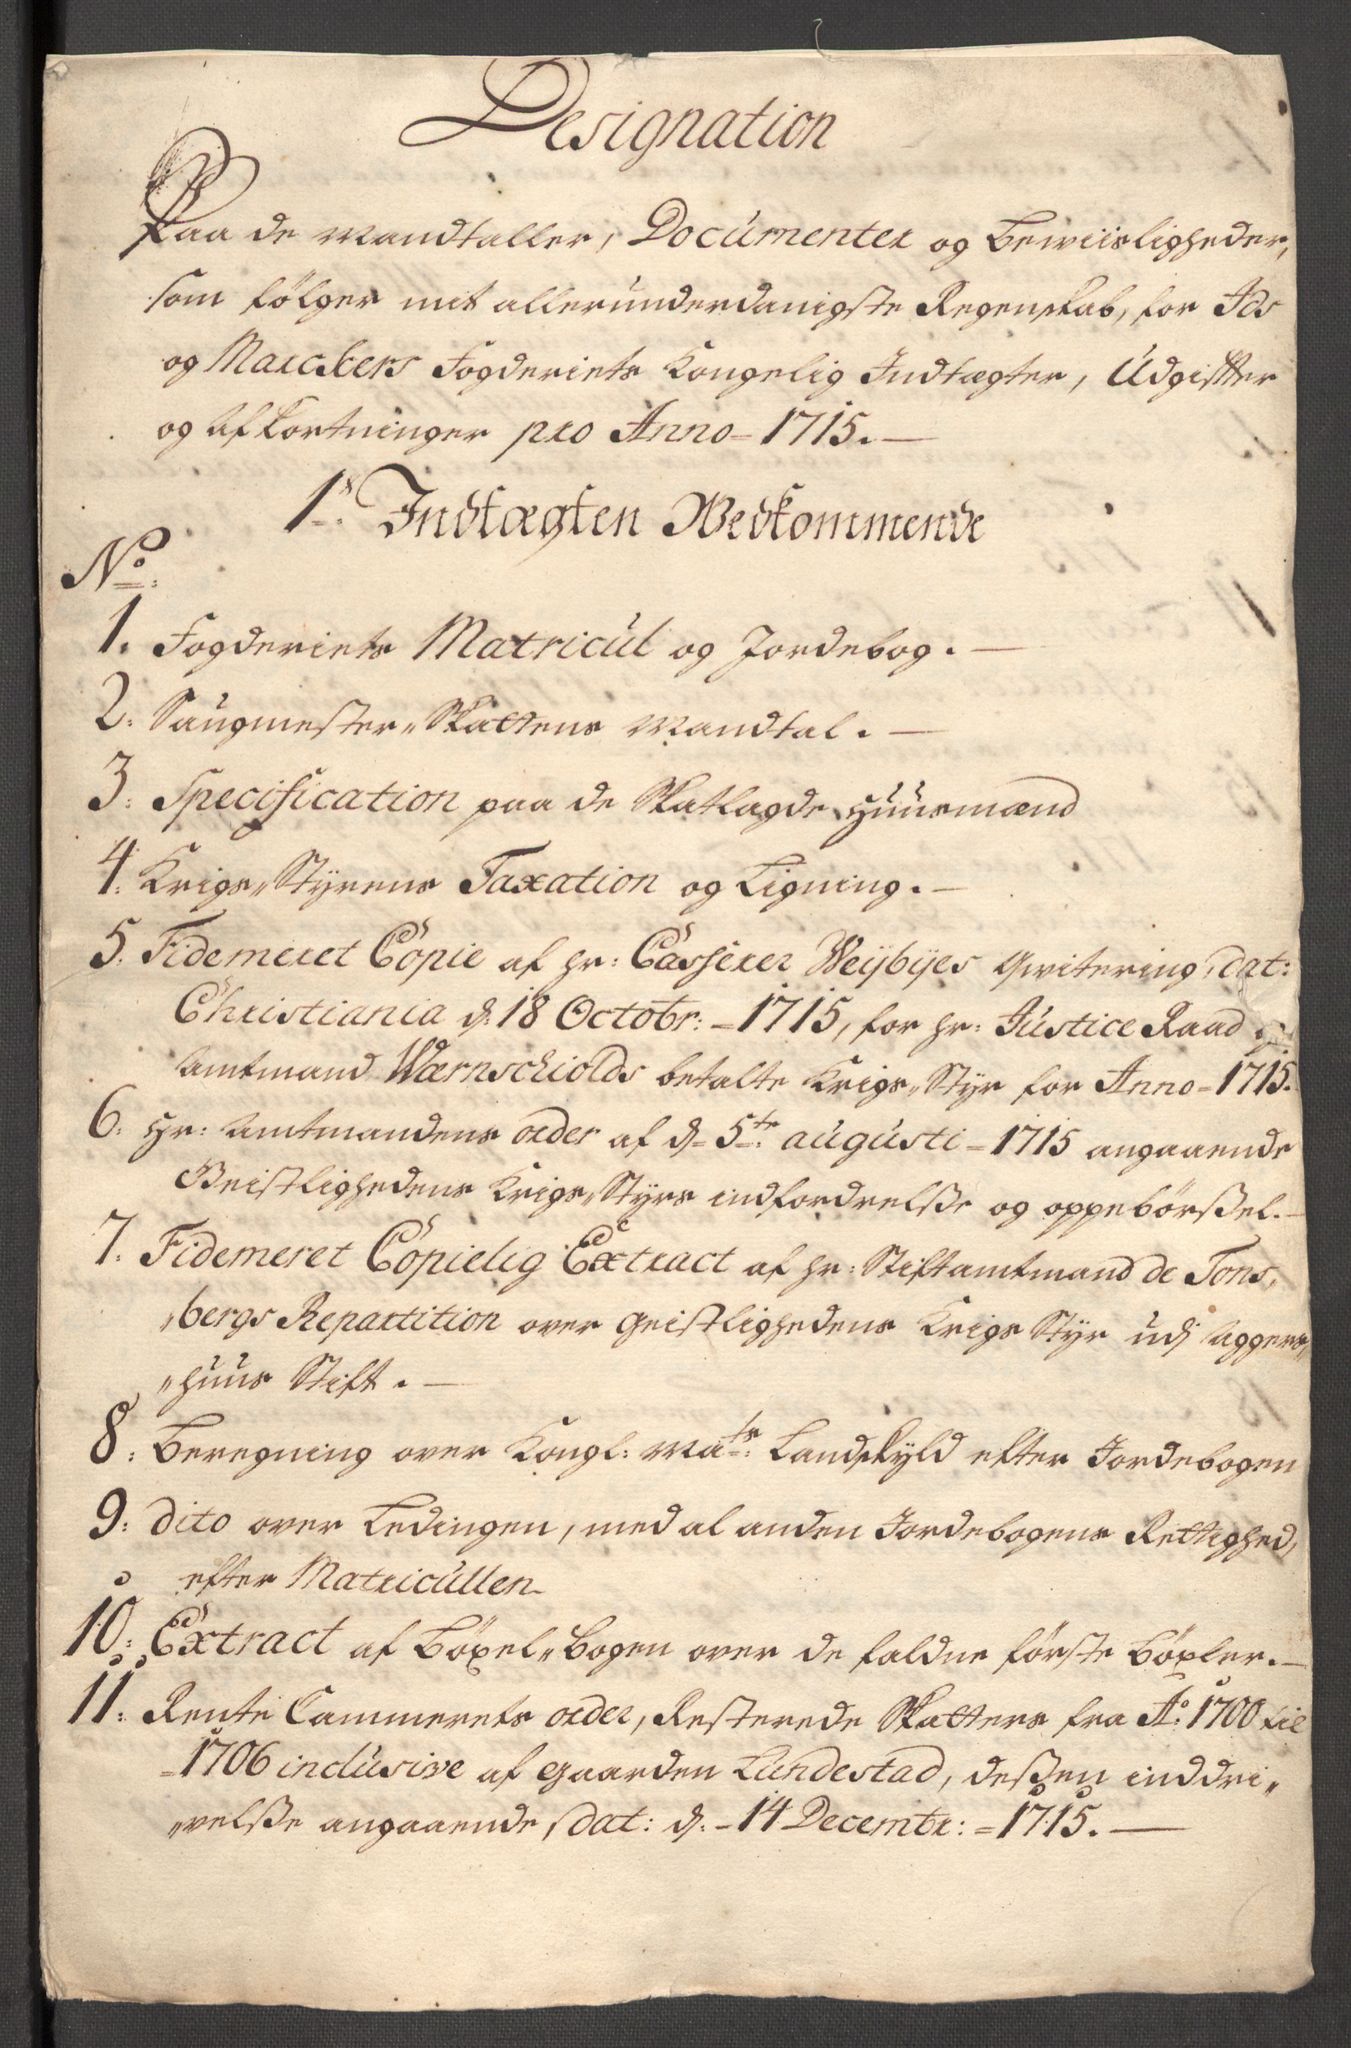 Designation
Paa de Mandtaller, Documenter og Beviisligheder,
som følger mit allerunderdanigste Regenskab, for Ids
og Marckers Fogderiets Kongelig Indtægter, Udgifter
og Afkortninger pro Anno = 1715. —
1. Indtægten Vedkommende
No.
1. Fogderiets Matricul og Jordebog. —
2. Saugmester-Skattens Mandtal. —
3. Specification paa de Skatlagde Huusmænd
4. Krigs-Styrens Taxation og Ligning. —
5. Fidemeret Copie af hr: Casserer Weijbyes Qvitering, dat:
Christiania d: 18 Octobr: = 1715, for hr: Justice Raad og
Amtmand Wærnschiolds betalte Krigs-Styr for Anno = 1715.
6. Hr: Amtmandens order af d= 5te augusti = 1715 angaaende
Geistlighedens Krigs-Styrs indfordrelsse og oppebørssel. —
7. Fidemeret Copielig Extract af hr: Stiftamtmand de Tons,
„bergs Repartition over Geistlighedens Krigs Styr udj Aggers„
„huus Stift. —
8: Beregning over Kongl: Mats: Landskyld efter Jordebogen
9: dito over Ledingen, med al anden Jordebogens Rettighed,
efter Matricullen
10: Extract af Böxel-Bogen over de faldne første Böxler. —
11: Rente Cammerets order, Resterede Skatters fra Ao: 1700 til
= 1706 inclusive af gaarden Lundestad, dessen inddri„
„velsse angaaende, dat: d: = 14 Decembr: = 1715. —